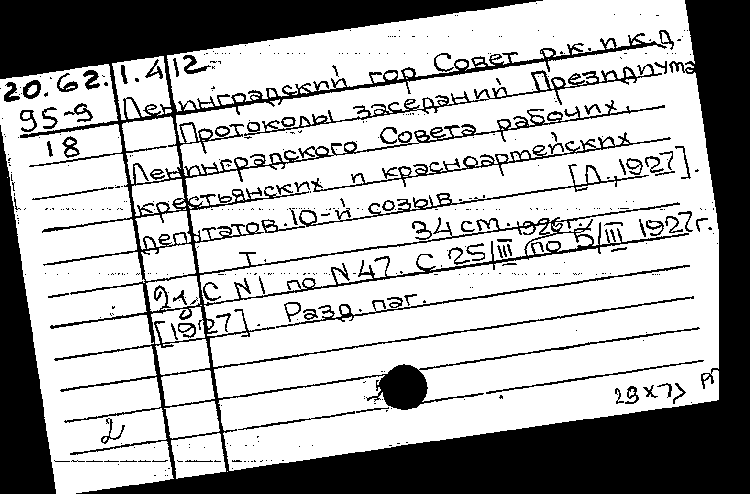 20.62.1.4.12
95-9 Ленинградский гор Совет р.к.и к.д.
18 Протоколы заседаний Президиума
Ленинградского Совета рабочих,
крестьянских и красноармейских
депутатов. 10-й созыв.... [Л., 1927].
т. 34 см. 1926 г.
С N1 по N47. С 25/III по 5/III 1927г.
[1927]. Разд. паг.
2
29 X 73